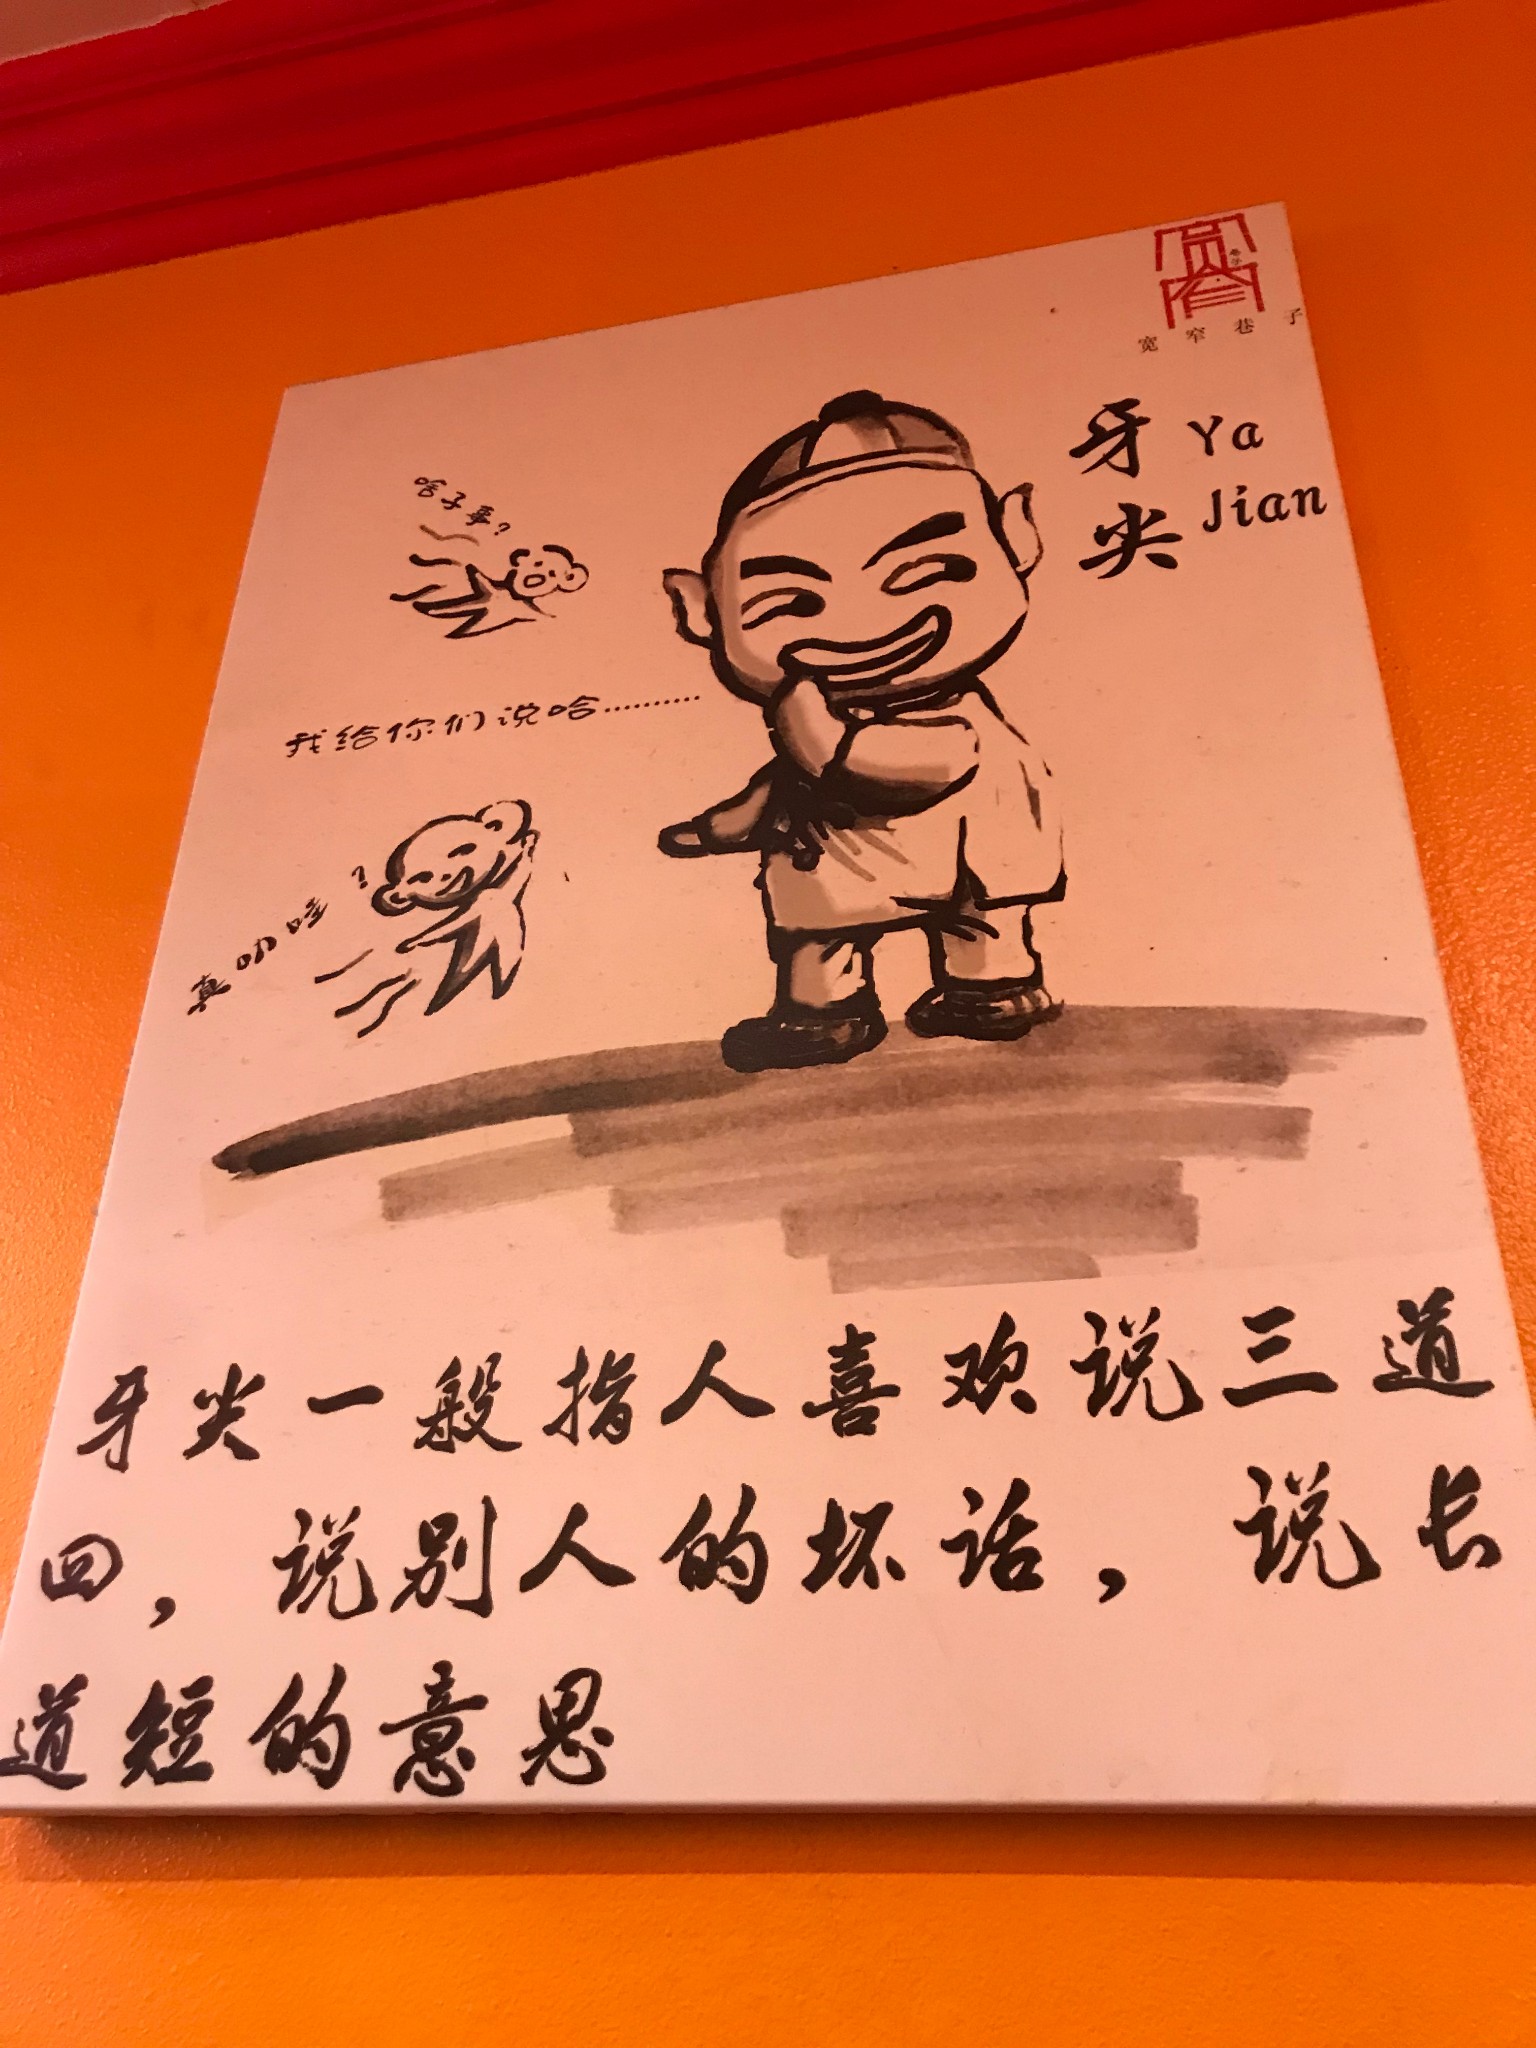 宽窄巷子
牙尖
Ya
Jian
啥子事?
我给你们说哈..........
真嘞哇?
牙尖一般指人喜欢说三道
四,说别人的坏话,说长
道短的意思